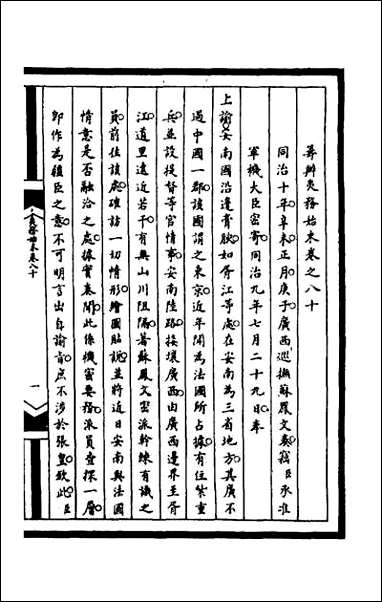 籌辦夷務始末卷之八十
同治十年辛未正月庚子廣西巡撫蘇鳳文奏竊臣承准
軍機大臣密寄同治九年七月二十九日奉
上諭安南國沿邊膏腴如胥江等處在安南為三省地方其廣不
過中國一郡該國謂之東京近年聞為法國所占據有住紮重
兵並設提督等官情事安南陸路接壤廣西由廣西邊界至胥
江道里遠近若干有無山川阻隔著蘇鳳文密派幹練有識之
員前往該處確訪一切情形繪圖貼說並將近日安南與法國
情意是否融洽之處據實奏聞此係機密要務派員查探一層
即作為疆臣之意不可明言出自諭旨庶不涉於張皇欽此臣
夷務始末卷八十
一